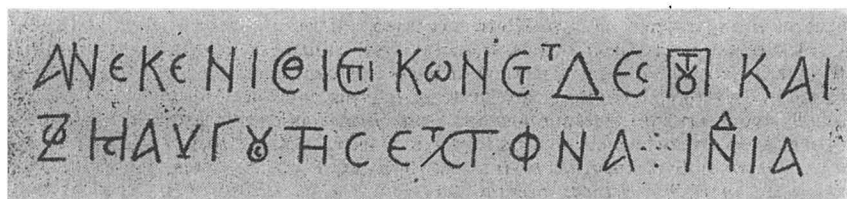 ΑΝΕΚΕΝΙCΘΙ ΕΠΙ ΚωΝCΤΤ ΔΕCΠΤȢ ΚΑΙ
ΖΟΗC ΑΥΓȢCΤΗC ΕΤΧ CΤΦΝΑ ⁖ ΙΝΔ ΙΑ